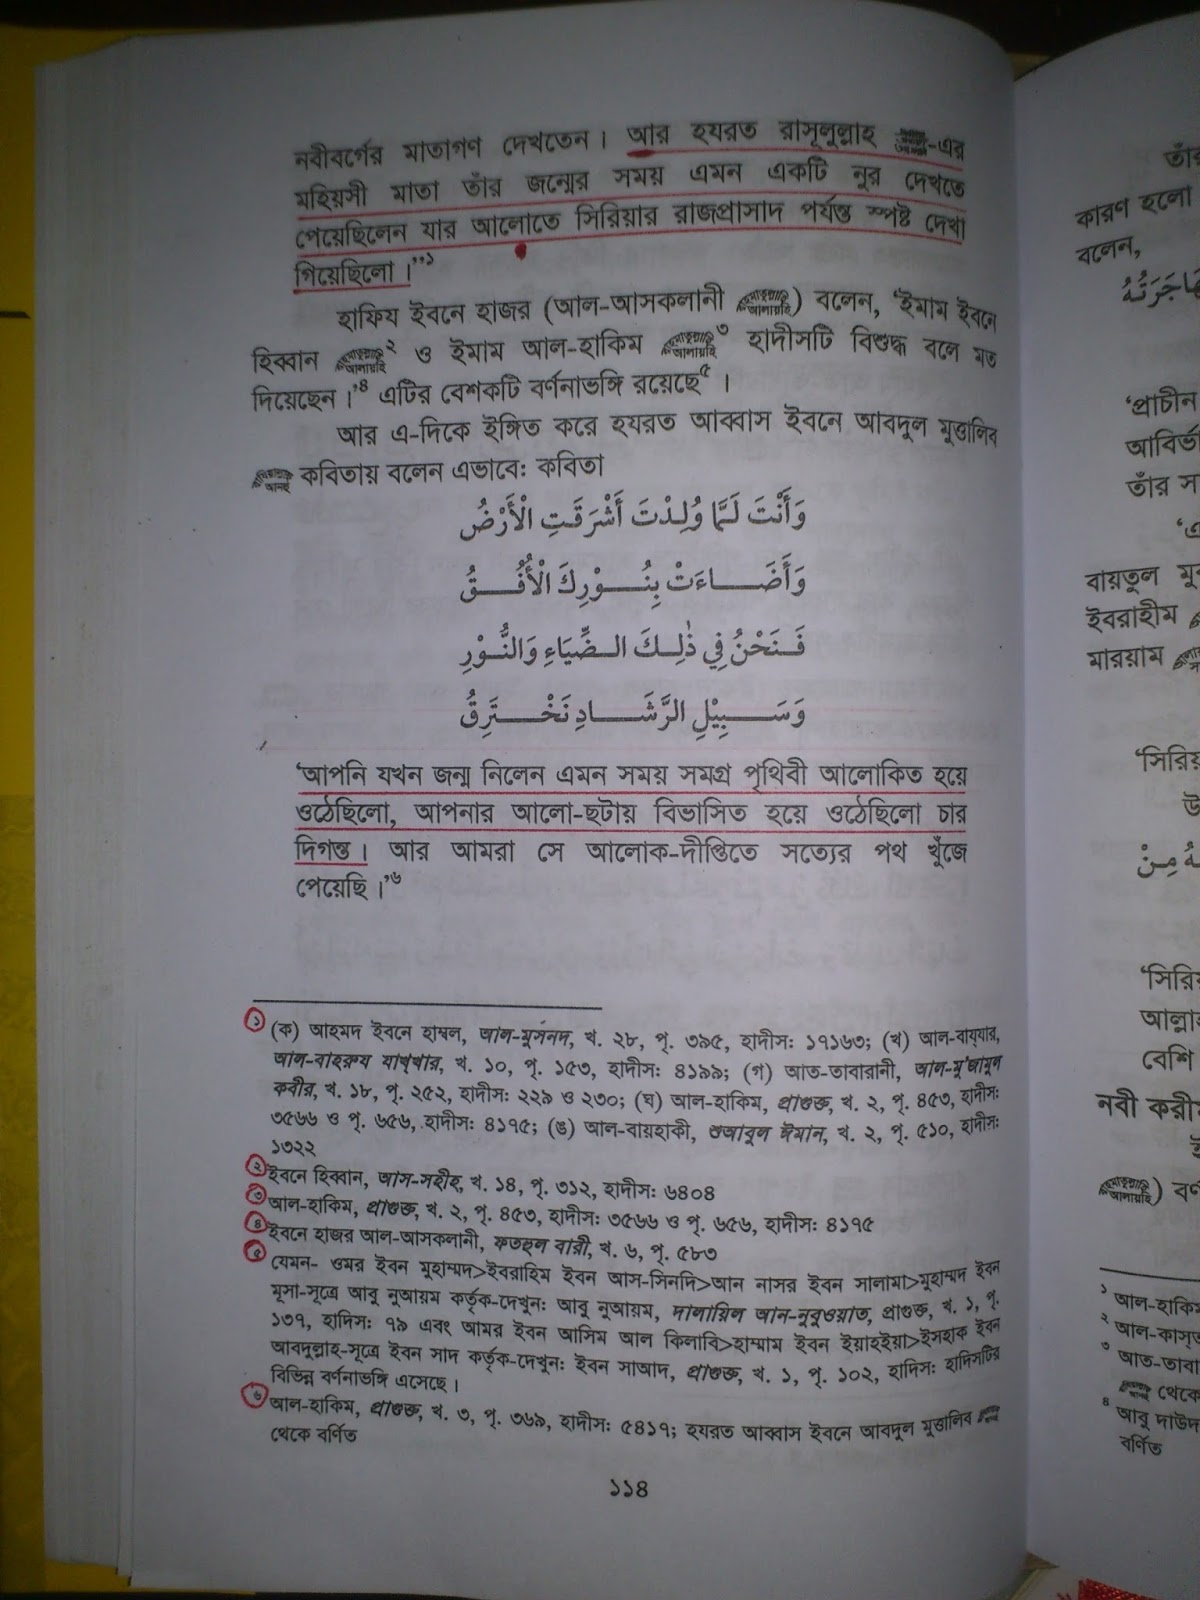 নবীবর্গের মাতাগণ দেখতেন। আর হযরত রাসূলুল্লাহ ﷺ-এর
মহিয়সী মাতা তাঁর জন্মের সময় এমন একটি নুর দেখতে
পেয়েছিলেন যার আলোতে সিরিয়ার রাজপ্রাসাদ পর্যন্ত স্পষ্ট দেখা
গিয়েছিলো।”১
হাফিয ইবনে হাজর (আল-আসকলানী) বলেন, ‘ইমাম ইবনে
হিব্বান ২ ও ইমাম আল-হাকিম ৩ হাদীসটি বিশুদ্ধ বলে মত
দিয়েছেন।’৪ এটির বেশকটি বর্ণনাভঙ্গি রয়েছে৫।
আর এ-দিকে ইঙ্গিত করে হযরত আব্বাস ইবনে আবদুল মুত্তালিব
কবিতায় বলেন এভাবে: কবিতা
وَأَنْتَ لَـمَّا وُلِـدْتَ أَشْرَقَـتِ الْأَرْضُ
وَأَضَـــاءَتْ بِنُـــوْرِكَ الْأُفُـــقُ
فَـنَحْنُ فِي ذٰلِـكَ الـضِّيَاءِ وَالنُّـوْرِ
وَسَـــبِيْلِ الرَّشَـــادِ نَخْـــتَرِقُ
‘আপনি যখন জন্ম নিলেন এমন সময় সমগ্র পৃথিবী আলোকিত হয়ে
ওঠেছিলো, আপনার আলো-ছটায় বিভাসিত হয়ে ওঠেছিলো চার
দিগন্ত। আর আমরা সে আলোক-দীপ্তিতে সত্যের পথ খুঁজে
পেয়েছি।’৬
১ (ক) আহমদ ইবনে হাম্বল, আল-মুসনদ, খ. ২৮, পৃ. ৩৯৫, হাদীস: ১৭১৬৩; (খ) আল-বায্‌যার,
আল-বাহরুয যাখ্‌খার, খ. ১০, পৃ. ১৫৩, হাদীস: ৪১৯৯; (গ) আত-তাবারানী, আল-মু'জামুল
কবীর, খ. ১৮, পৃ. ২৫২, হাদীস: ২২৯ ও ২৩০; (ঘ) আল-হাকিম, প্রাগুক্ত, খ. ২, পৃ. ৪৫৩, হাদীস:
৩৫৬৬ ও পৃ. ৬৫৬, হাদীস: ৪১৭৫; (ঙ) আল-বায়হাকী, শুআবুল ঈমান, খ. ২, পৃ. ৫১০, হাদীস:
১৩২২
২ ইবনে হিব্বান, আস-সহীহ, খ. ১৪, পৃ. ৩১২, হাদীস: ৬৪০৪
৩ আল-হাকিম, প্রাগুক্ত, খ. ২, পৃ. ৪৫৩, হাদীস: ৩৫৬৬ ও পৃ. ৬৫৬, হাদীস: ৪১৭৫
৪ ইবনে হাজর আল-আসকলানী, ফতহুল বারী, খ. ৬, পৃ. ৫৮৩
৫ যেমন- ওমর ইবন মুহাম্মদ>ইবরাহিম ইবন আস-সিনদি>আন নাসর ইবন সালামা>মুহাম্মদ ইবন
মূসা-সূত্রে আবু নুআয়ম কর্তৃক-দেখুন: আবু নুআয়ম, দালায়িল আন-নুবুওয়াত, প্রাগুক্ত, খ. ১, পৃ.
১৩৭, হাদিস: ৭৯ এবং আমর ইবন আসিম আল কিলাবি>হাম্মাম ইবন ইয়াহইয়া>ইসহাক ইবন
আবদুল্লাহ-সূত্রে ইবন সাদ কর্তৃক-দেখুন: ইবন সাআদ, প্রাগুক্ত, খ. ১, পৃ. ১০২, হাদিস: হাদিসটির
বিভিন্ন বর্ণনাভঙ্গি এসেছে।
৬ আল-হাকিম, প্রাগুক্ত, খ. ৩, পৃ. ৩৬৯, হাদীস: ৫৪১৭; হযরত আব্বাস ইবনে আবদুল মুত্তালিব
থেকে বর্ণিত
১১৪
কারণ হলো
বলেন,
‘প্রাচীন
বায়তুল
ইবরাহীম
মারয়াম
مِـنْ
বেশি
নবী
১ আল-হাকিম
২
৩
থেকে
৪ আবু দাউদ
বর্ণিত